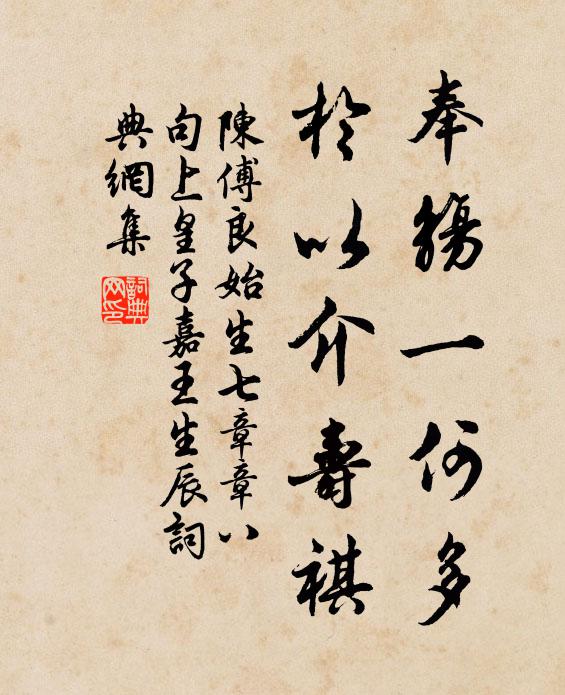 奉觴一何多
於以介壽祺
陳傅良始生七章章八
句上皇子嘉王生辰詞
典網集
詞典
网印